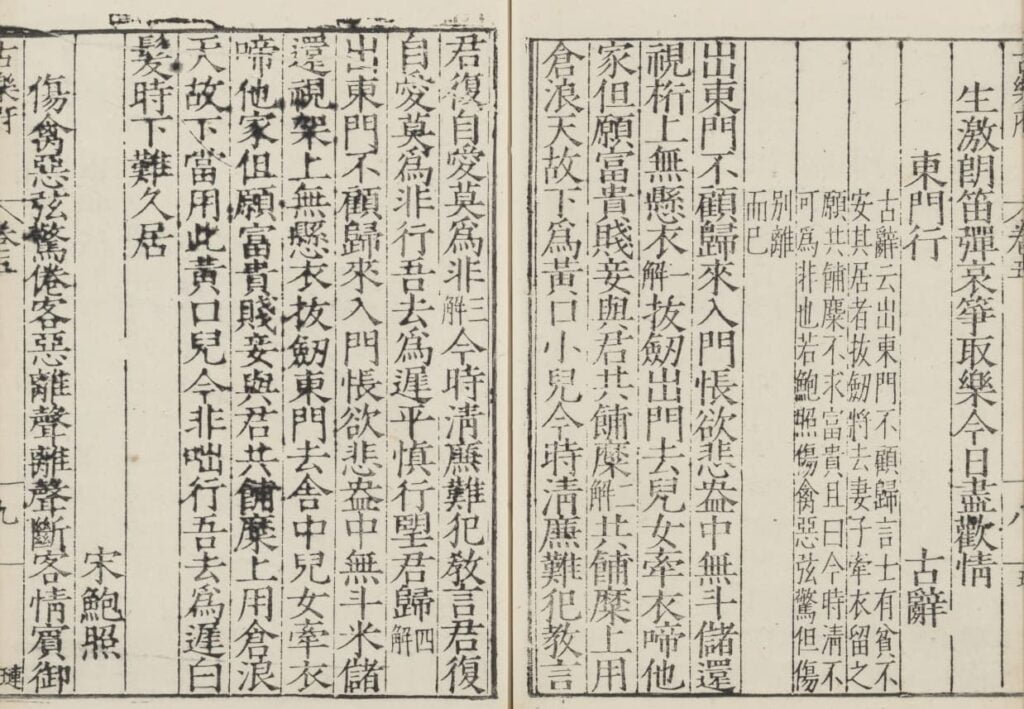 古樂府 卷五 八
生激朗笛彈哀箏取樂今日盡歡情
東門行 古辭
古辭云出東門不顧歸言士有貧不
安其居者拔劒將去妻子牽衣留之
願共餔麋不求富貴且曰今時清不
可為非也若鮑照傷禽惡弦驚但傷
別離
而已
出東門不顧歸來入門悵欲悲盎中無斗儲還
視桁上無懸衣一解拔劒出門去兒女牽衣啼他
家但願富貴賤妾與君共餔糜二解共餔糜上用
倉浪天故下為黃口小兒今時清廉難犯教言
君復自愛莫為非三解今時清廉難犯教言君復
自愛莫為非行吾去為遲平慎行望君歸四解
出東門不顧歸來入門悵欲悲盎中無斗米儲
還視架上無懸衣拔劒東門去舍中兒女牽衣
啼他家但願富貴賤妾與君共餔糜上用倉浪
天故下當用此黃口兒今非咄行吾去為遲白
髮時下難久居
宋鮑照
傷禽惡弦驚倦客惡離聲離聲斷客情賓御
古樂府 卷五 九 璉